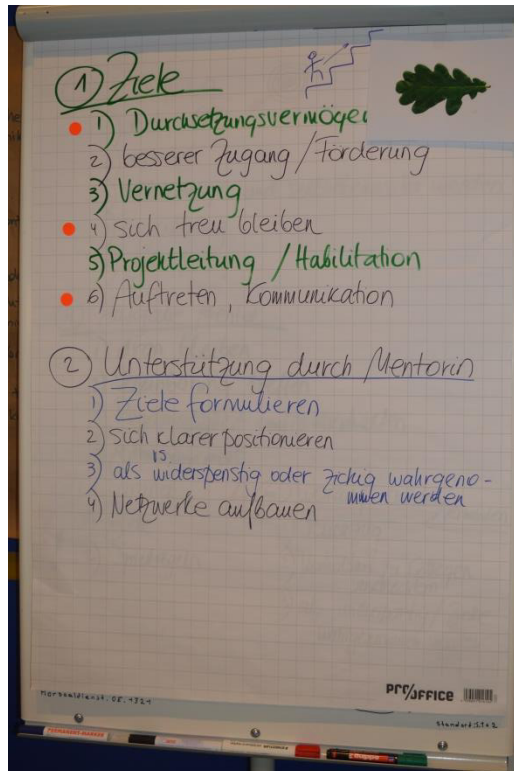 ① Ziele
1) Durchsetzungsvermöge
2) besserer Zugang / Förderung
3) Vernetzung
4) sich treu bleiben
5) Projektleitung / Habilitation
6) Auftreten, Kommunikation
② Unterstützung durch Mentorin
1) Ziele formulieren
2) sich klarer positionieren
3) als widerspenstig oder zickig wahrgeno-
mmen werden
4) Netzwerke aufbauen
PRO/OFFICE
PERMANENT-MARKER